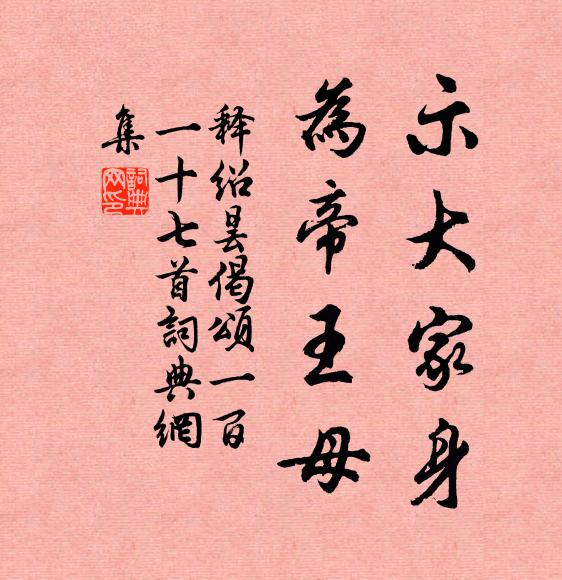 示大家身
為帝王母
释绍昙偈頌一百
一十七首詞典網
集
詞典網印